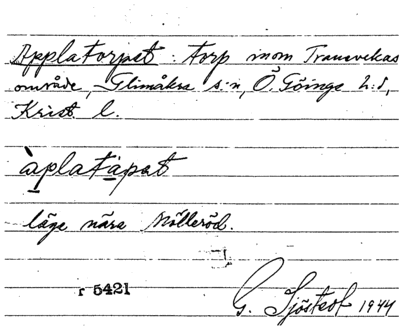 Applatorpet : torp inom Tranevekas
område, Glimåkra s:n, Ö. Göinge h:d,
Krist. l.
àplatápat
läge nära Mölleröd.
r 5421
G. Sjöstedt 1944